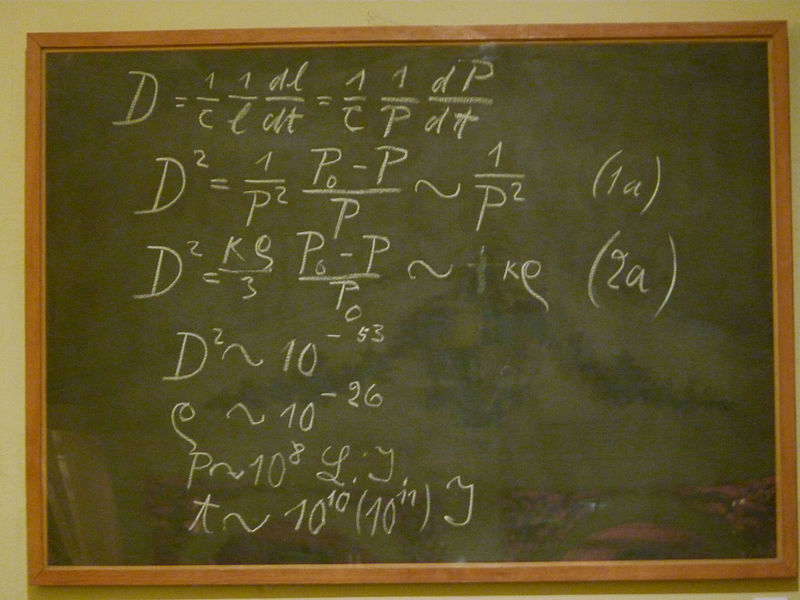 D = 1/c 1/l dl/dt = 1/c 1/P dP/dt
D² = 1/P² (P₀ − P)/P ~ 1/P² (1a)
D² = κρ/3 (P₀ − P)/P₀ ~ κρ (2a)
D² ~ 10⁻⁵³
ρ ~ 10⁻²⁶
P ~ 10⁸ L. J.
t ~ 10¹⁰ (10¹¹) J